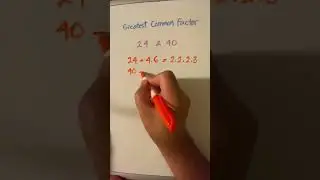 Greatest Common Factor
24 & 40
24 = 4.6 = 2.2.2.3
40 =